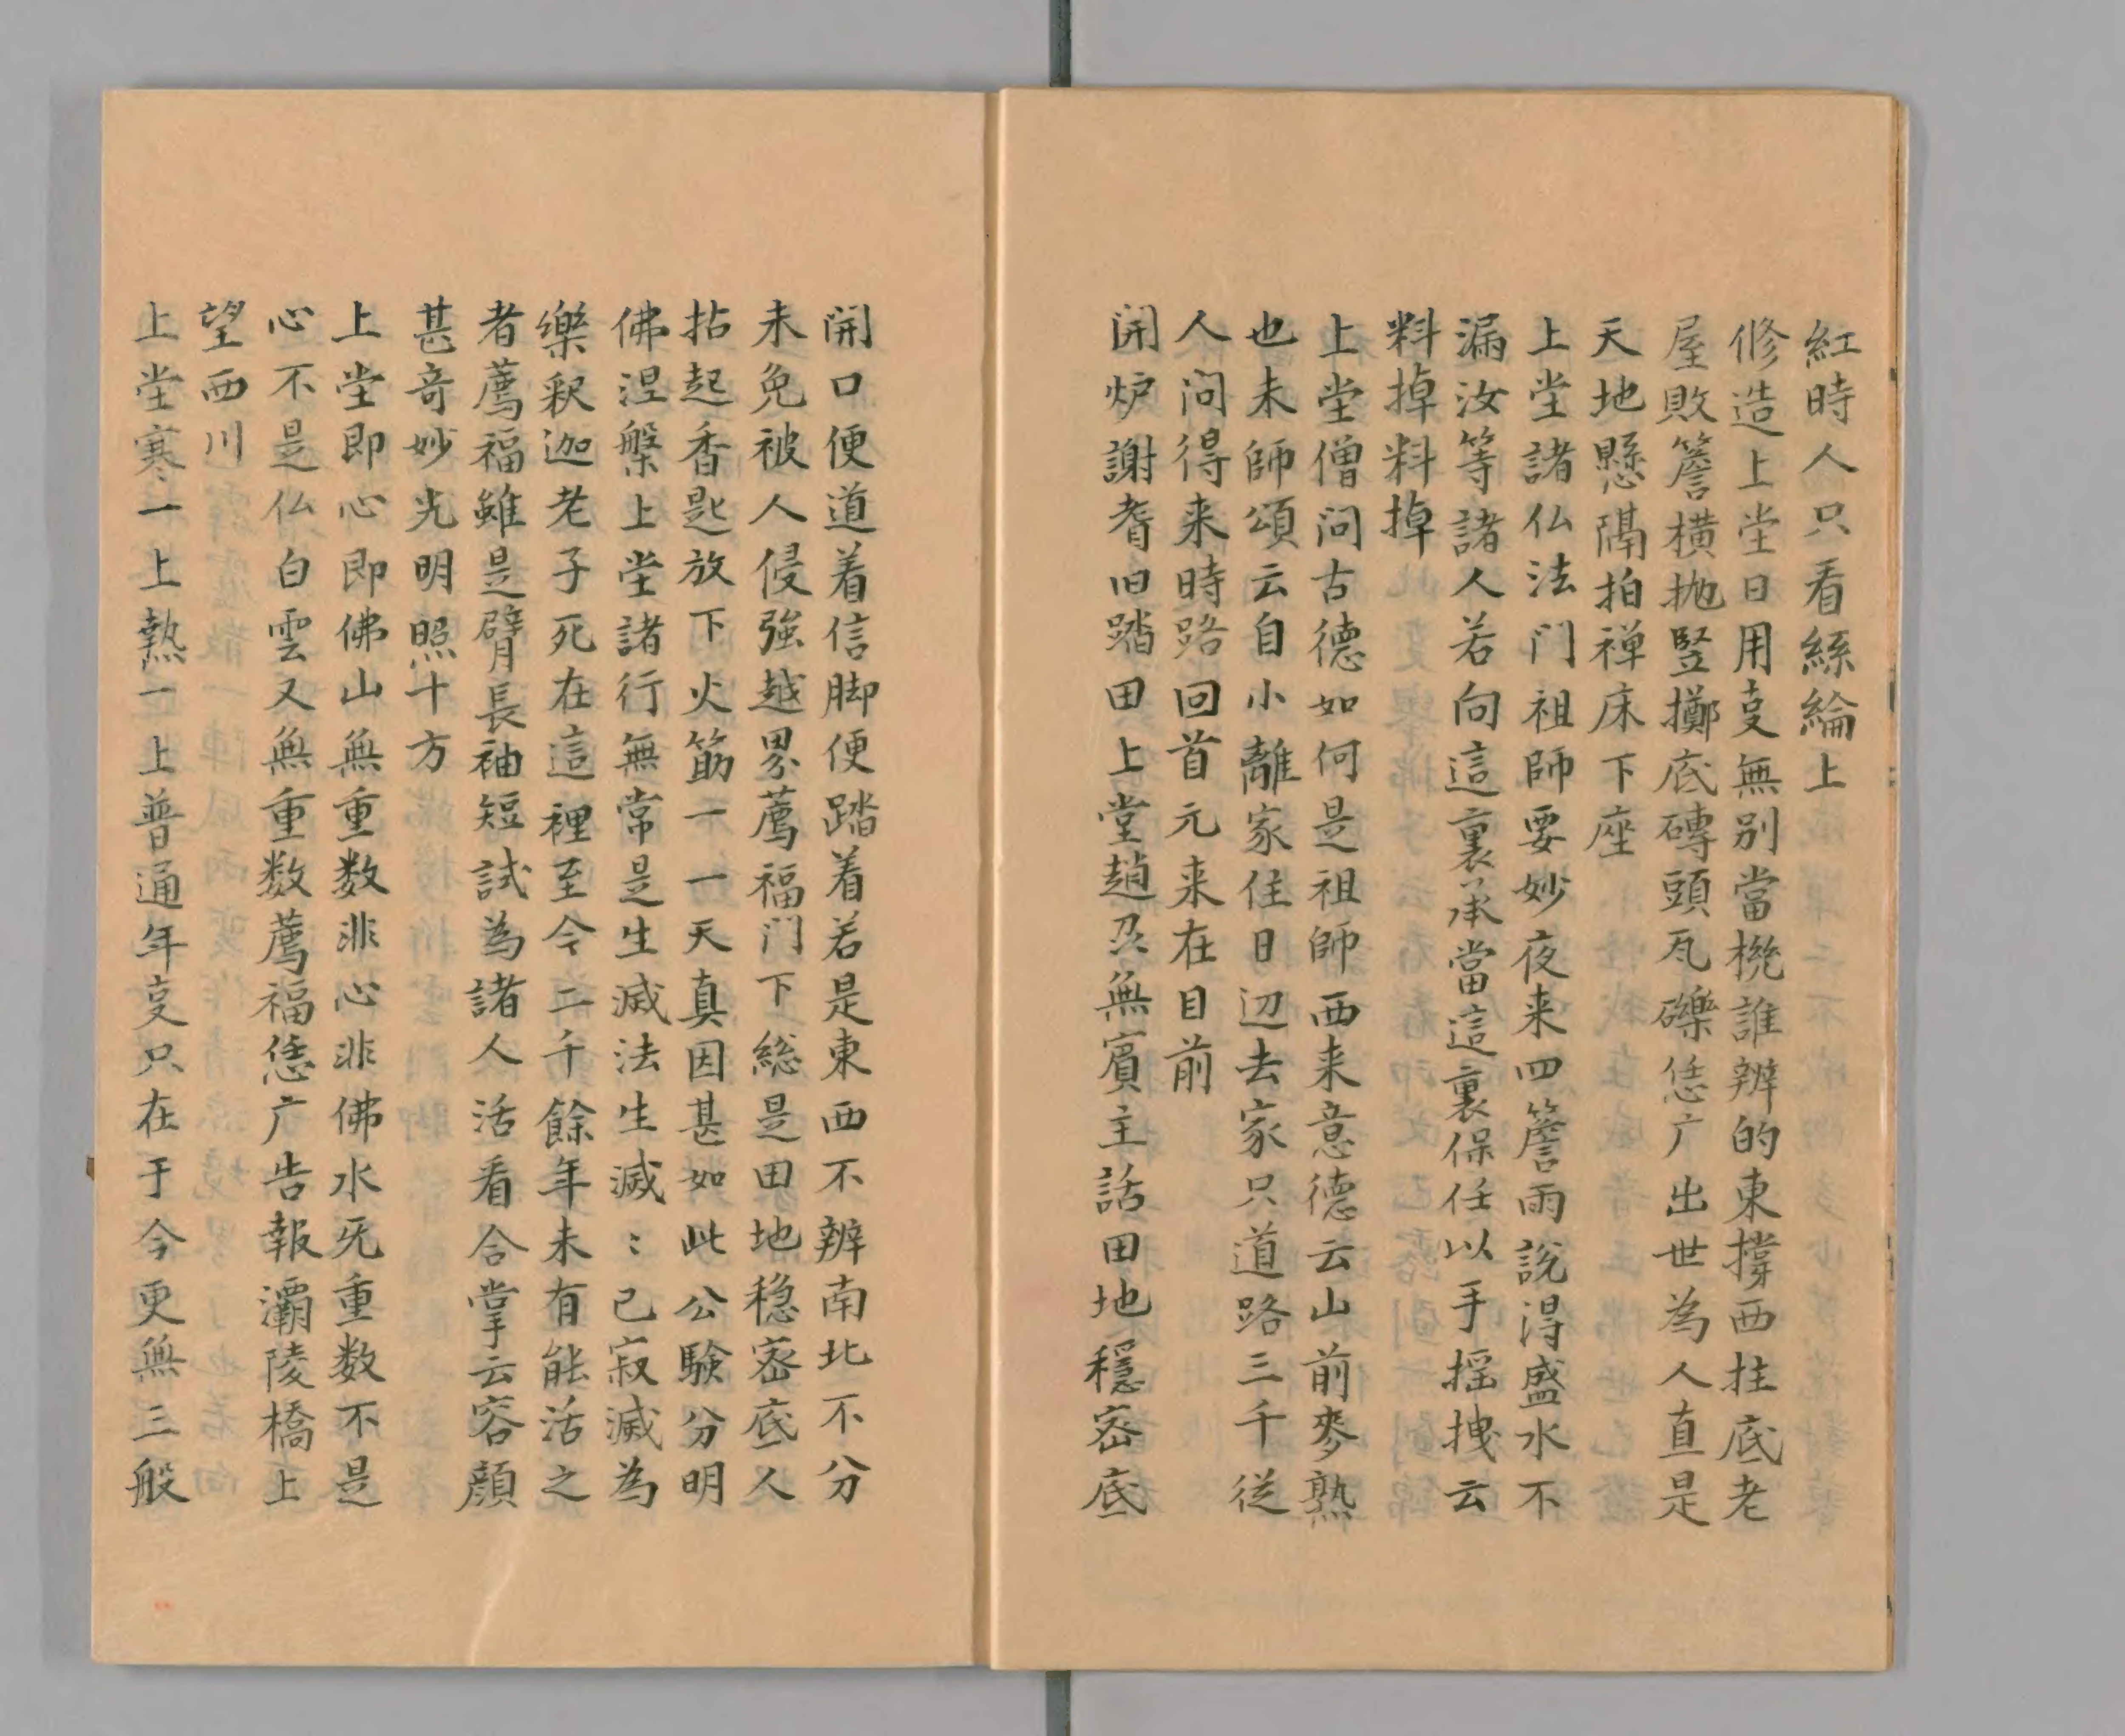 紅時人只看絲綸上
修造上堂日用㕝無別當機誰辨的東撐西拄底老
屋敗簷橫拋竪擲底磚頭瓦礫恁广出世為人直是
天地懸隔拍禅床下座
上堂諸仏法门祖師要妙夜来四簷雨說得盛水不
漏汝等諸人若向這裏承當這裏保任以手揺拽云
料掉料掉
上堂僧问古德如何是祖師西来意德云山前麥熟
也未師頌云自小離家住日辺去家只道路三千従
人问得来時路回首元来在目前
開炉謝耆旧踏田上堂趙州無賓主話田地穩密底
開口便道着信脚便踏着若是東西不辨南北不分
未免被人侵強越界薦福门下総是田地穏密底人
拈起香匙放下火筯一一天真因甚如此公験分明
佛涅槃上堂諸行無常是生滅法生滅〻已寂滅為
樂釈迦老子死在這裡至今二千餘年未有能活之
者薦福雖是臂長袖短試為諸人活看合掌云容顔
甚竒妙光明照十方
上堂即心即佛山無重数非心非佛水无重数不是
心不是仏白雲又無重数薦福恁广告報灞陵橋上
望西川
上堂寒一上熱一上普通年㕝只在于今更無三般